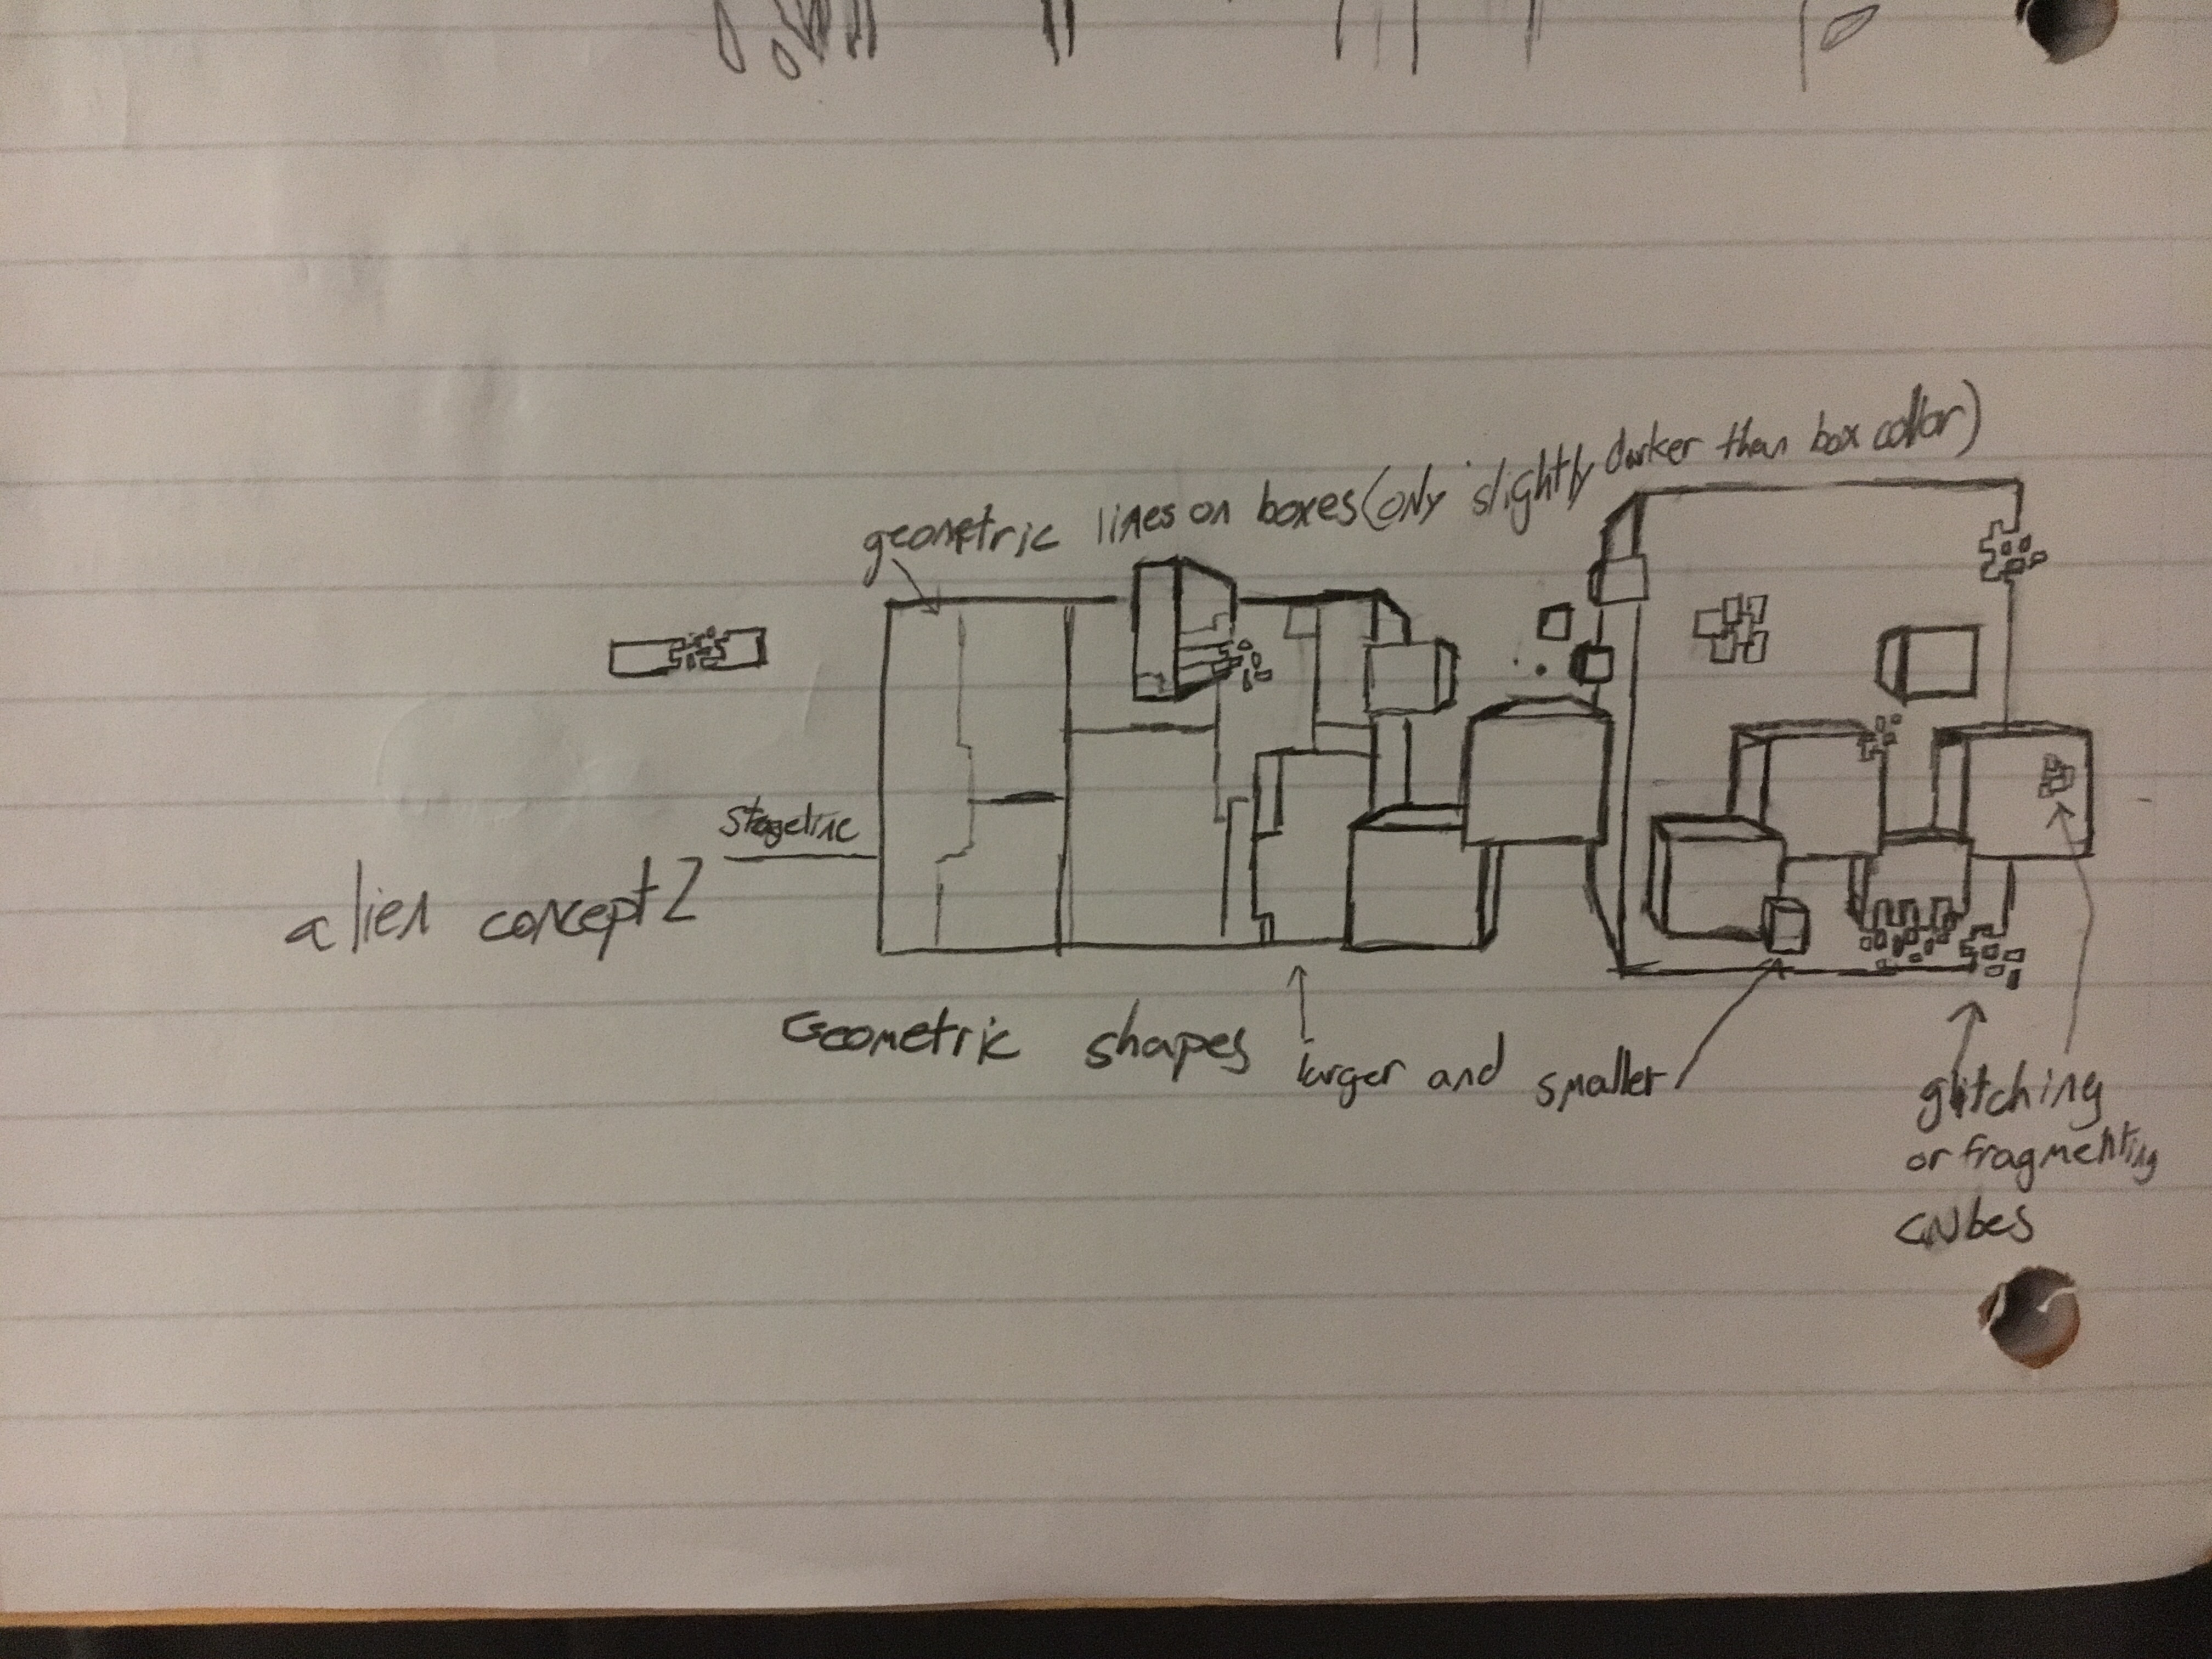 geometric lines on boxes (only slightly darker than box collor)
Stageline
alien concept 2
Geometric shapes
larger and smaller
glitching
or fragmenting
cubes